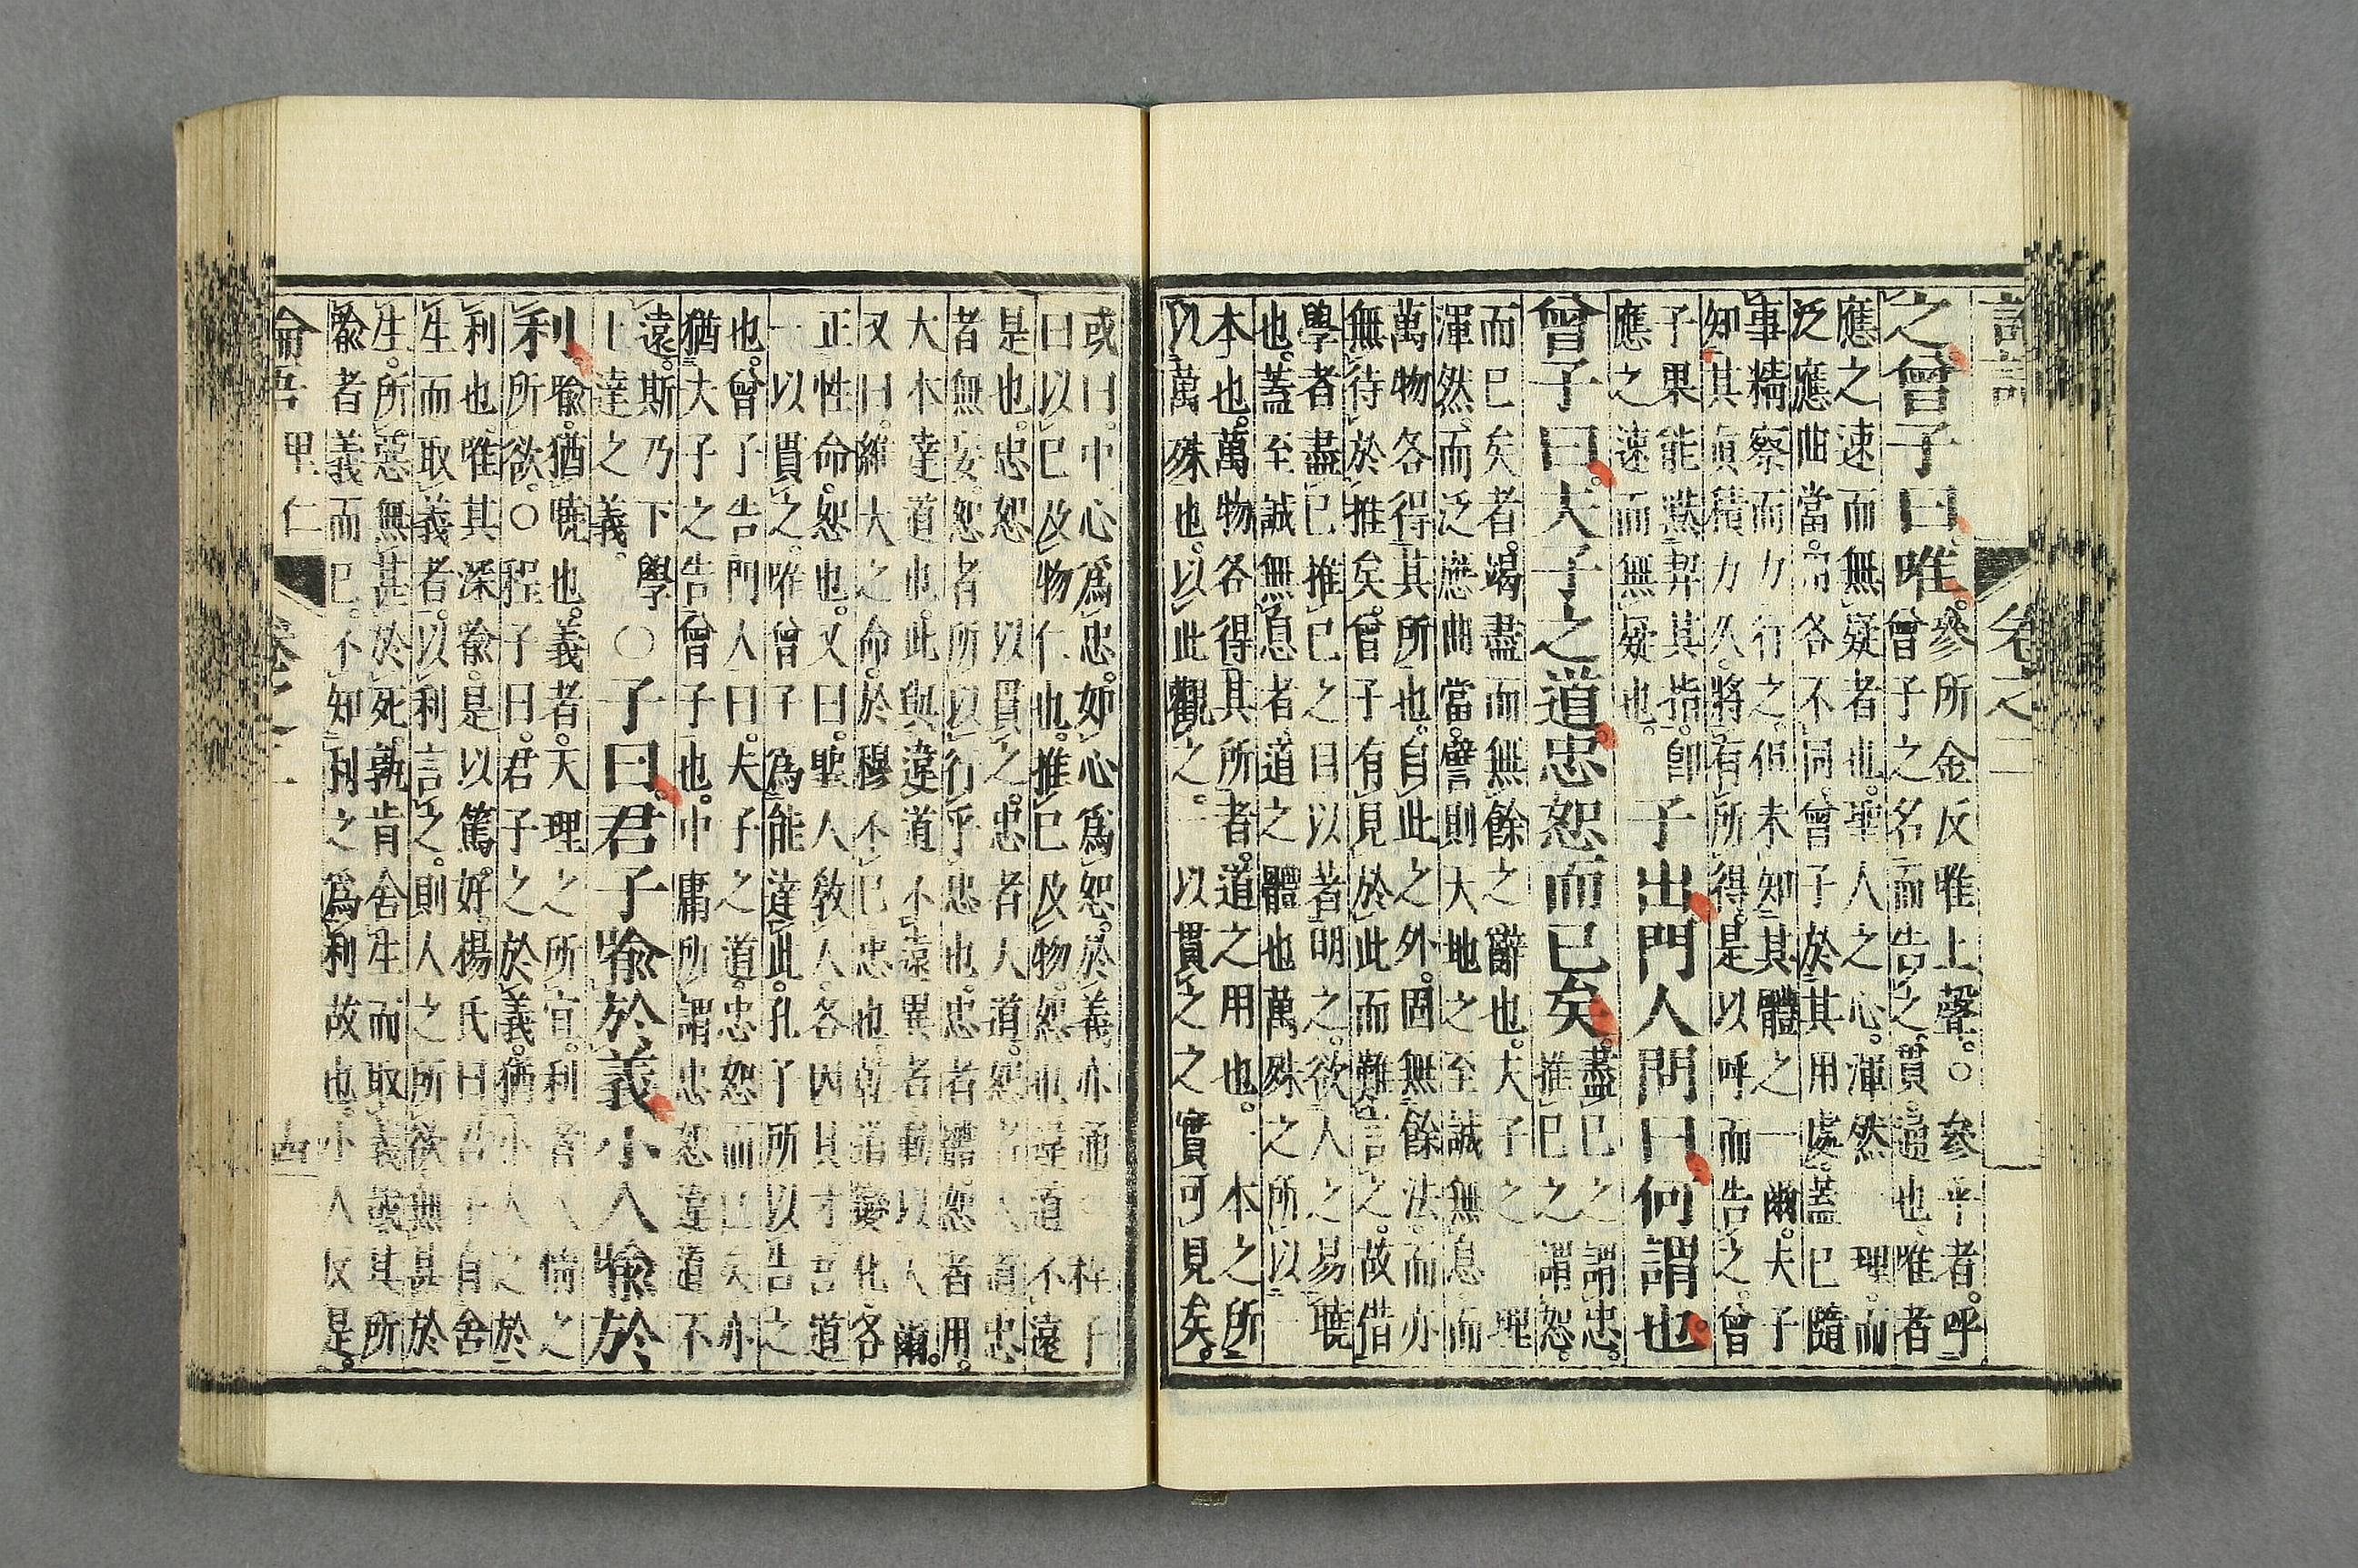 卷之二
之曾子曰唯。參所金反唯上聲。○參乎者。呼
曾子之名而告之。貫。通也。唯者
應之速而無疑者也。聖人之心。渾然一理。而
泛應曲當。用各不同。曾子於其用處。蓋已隨
事精察而力行之。但未知其體之一爾。夫子
知其真積力久。將有所得。是以呼而告之。曾
子果能默契其指。卽
應之速而無疑也。
子出門人問曰何謂也
曾子曰夫子之道忠恕而已矣。盡己之謂忠。
推己之謂恕。
而已矣者。竭盡而無餘之辭也。夫子之一理
渾然。而泛應曲當。譬則天地之至誠無息。而
萬物各得其所也。自此之外。固無餘法。而亦
無待於推矣。曾子有見於此而難言之。故借
學者盡己推己之目以著明之。欲人之易曉
也。蓋至誠無息者。道之體也萬殊之所以一
本也。萬物各得其所者。道之用也。一本之所
以萬殊也。以此觀之。一以貫之之實可見矣。
或曰。中心爲忠。如心爲恕。於義亦通。程子
曰以己及物仁也。推己及物。恕也違道不遠
是也。忠恕一以貫之。忠者天道。恕者人道忠
者無妄。恕者所以行乎忠也。忠者體。恕者用。
大本達道也。此與違道不遠異者動以人爾。
又曰。維天之命。於穆不已忠也。乾道變化。各
正性命。恕也。又曰。聖人敎人。各因其才吾道
一以貫之。唯曾子爲能達此。孔子所以告之
也。曾子告門人曰。夫子之道。忠恕而已矣亦
猶夫子之告曾子也。中庸所謂忠恕違道不
遠。斯乃下學
上達之義。
○子曰。君子喩於義小人喩於
利。喩。猶曉也。義者。天理之所宜。利者人情之
所欲。○程子曰。君子之於義。猶小人之於
利也。唯其深喩。是以篤好。楊氏曰君子有舍
生而取義者。以利言之。則人之所欲無甚於
生。所惡無甚於死。孰肯舍生而取義哉其所
喩者義而已。不知利之爲利故也。小人反是。
論吾 里仁 卷之二